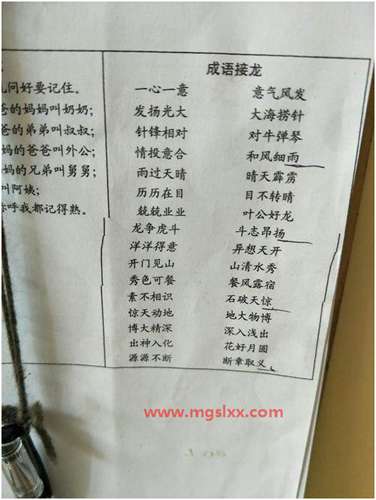 问好要记住。
爸的妈妈叫奶奶；
爸的弟弟叫叔叔；
妈的爸爸叫外公；
妈的兄弟叫舅舅；
叫阿姨；
呼我都记得熟。
成语接龙
一心一意 意气风发
发扬光大 大海捞针
针锋相对 对牛弹琴
情投意合 和风细雨
雨过天晴 晴天霹雳
历历在目 目不转睛
兢兢业业 叶公好龙
龙争虎斗 斗志昂扬
洋洋得意 异想天开
开门见山 山清水秀
秀色可餐 餐风露宿
素不相识 石破天惊
惊天动地 地大物博
博大精深 深入浅出
出神入化 花好月圆
源源不断 断章取义
www.mgslxx.com